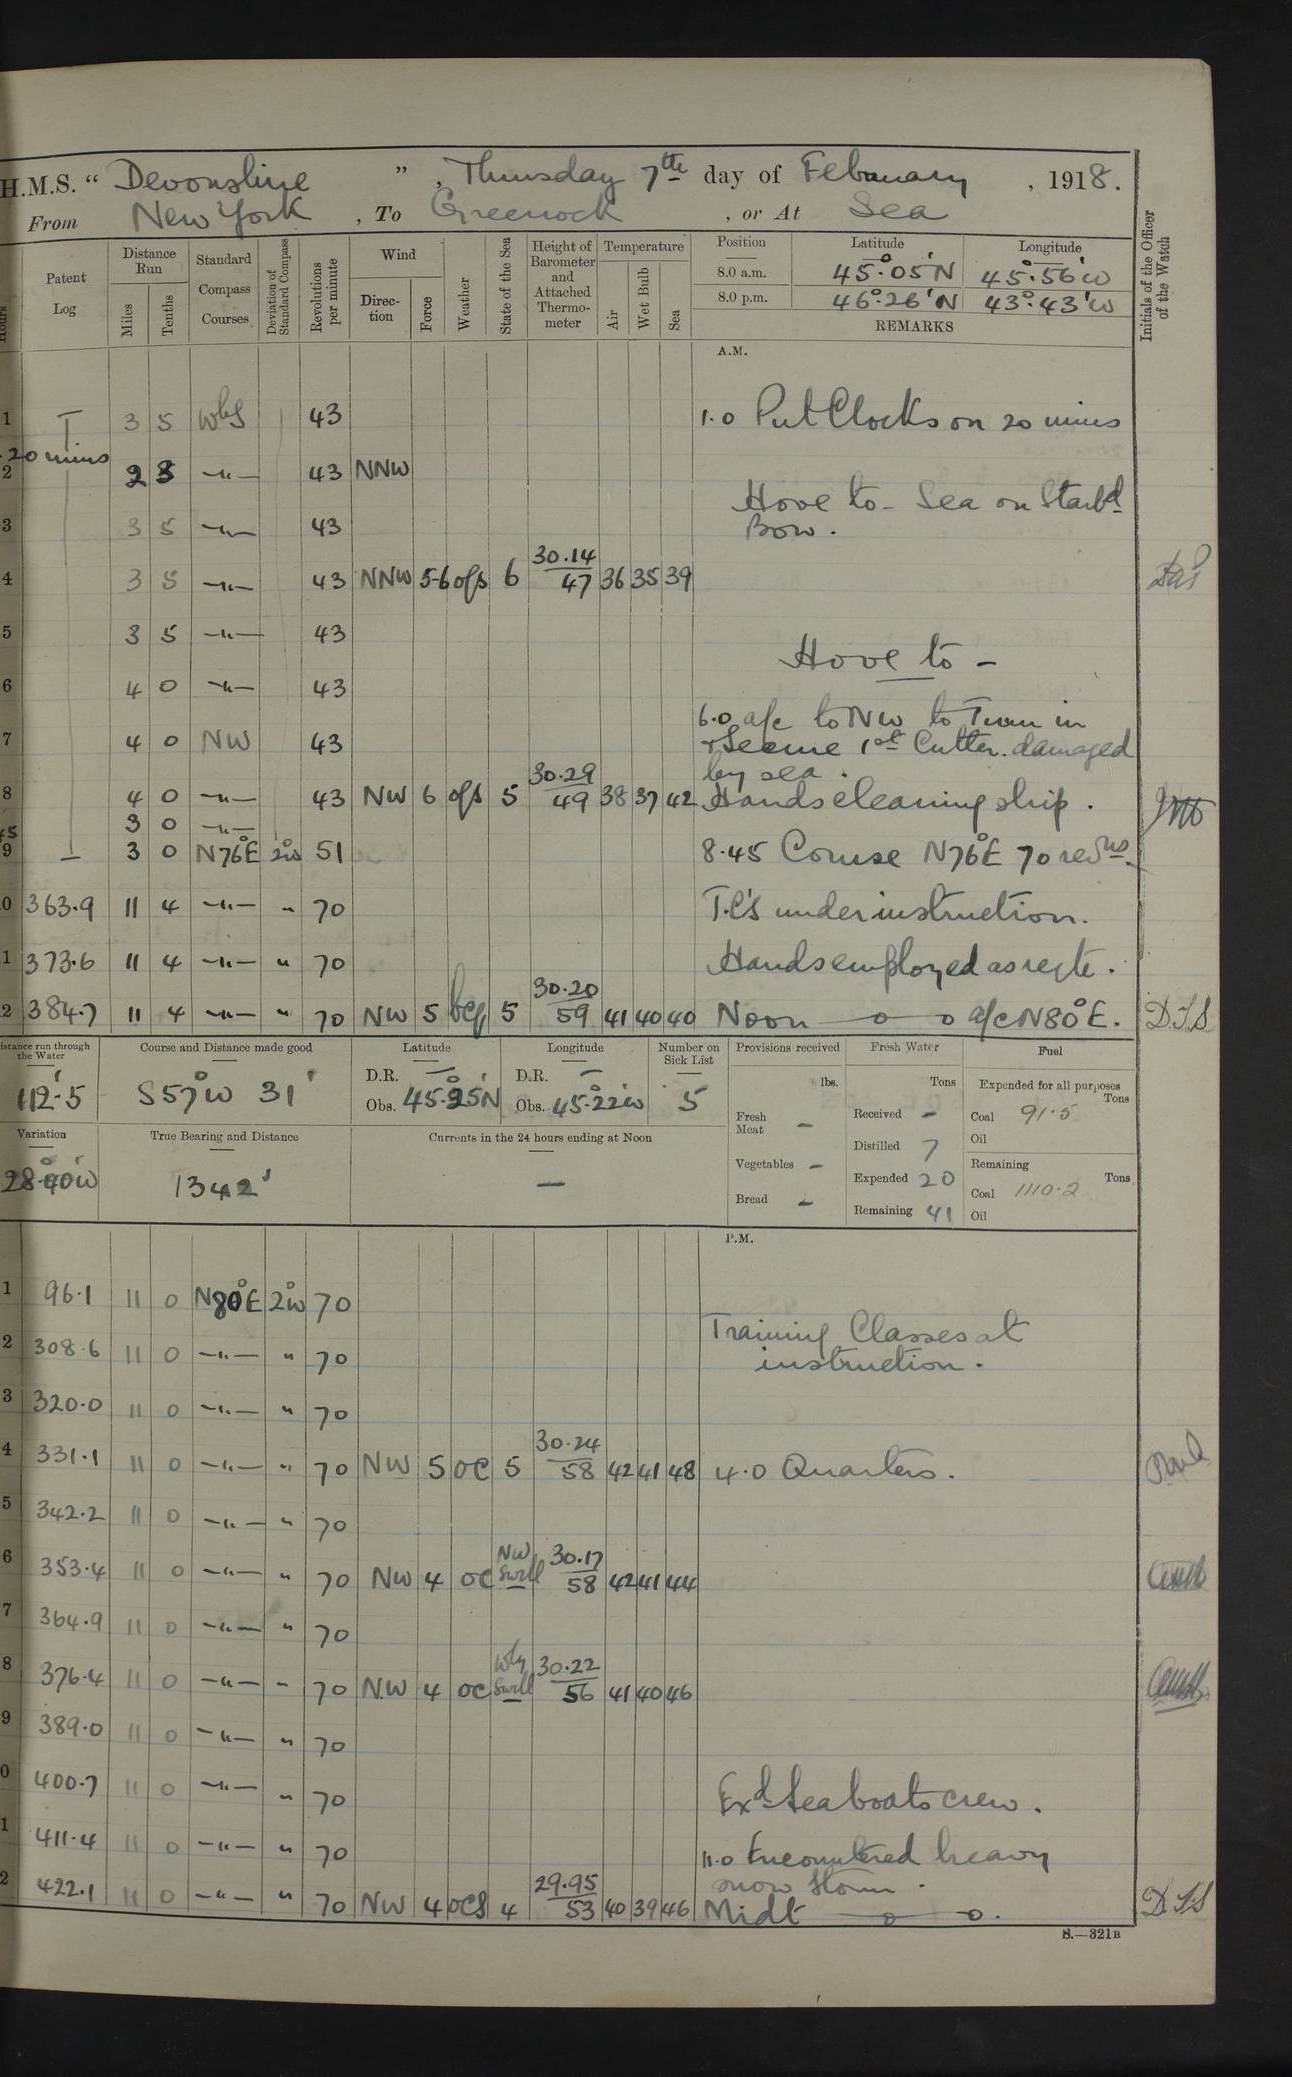 H.M.S. “ Devonshire ” , Thursday 7th day of February , 1918.
From New York , To Greenock , or At Sea
Hours
Patent Log
Distance Run
Miles
Tenths
Standard Compass Courses
Deviation of Standard Compass
Revolutions per minute
Wind
Direc-tion
Force
Weather
State of the Sea
Height of Barometer and Attached Thermo-meter
Temperature
Air
Wet Bulb
Sea
Position Latitude Longitude
8.0 a.m. 45°.05'N 45°.56'W
8.0 p.m. 46°.26'N 43°.43'W
REMARKS
Initials of the Officer of the Watch
A.M.
1 3 5 WbS 43 1.0 Put Clocks on 20 mins
20 mins
2 2 8 -"- 43 NNW
Hove to - Sea on Starbd
Bow.
3 3 5 -"- 43
4 3 5 -"- 43 NNW 5-6 ofs 6 30.14/47 36 35 39
5 3 5 -"- 43
Hove to -
6 4 0 -"- 43
6.0 a/c to NW to Turn in
7 4 0 NW 43 + Secure 1st Cutter. damaged
by sea.
8 4 0 -"- 43 NW 6 ofs 5 30.29/49 38 37 42 Hands cleaning ship.
45 3 0 -"-
9 3 0 N76°E 2°W 51 8.45 Course N76°E 70 revns.
0 363.9 11 4 -"- " 70 T.C's under instruction.
1 373.6 11 4 -"- " 70 Hands employed as reqte.
2 384.7 11 4 -"- " 70 NW 5 bcq 5 30.20/59 41 40 40 Noon —o—o a/c N80°E. D.S.S
Distance run through the Water
112'.5
Course and Distance made good
S57°W 31'
Latitude
D.R. —
Obs. 45°.25'N
Longitude
D.R. —
Obs. 45.22W
Number on Sick List
5
Provisions received
lbs.
Fresh Meat -
Vegetables -
Bread -
Fresh Water
Tons
Received -
Distilled 7
Expended 20
Remaining 41
Fuel
Expended for all purposes
Tons
Coal 91.5
Oil
Remaining
Tons
Coal 1110.2
Oil
Variation
28°.40'W
True Bearing and Distance
1342'
Currents in the 24 hours ending at Noon
—
P.M.
1 96.1 11 0 N80°E 2°W 70
Training Classes at
2 308.6 11 0 -"- " 70 instruction.
3 320.0 11 0 -"- " 70
4 331.1 11 0 -"- " 70 NW 5 oc 5 30.24/58 42 41 48 4.0 Quarters.
5 342.2 11 0 -"- " 70
6 353.4 11 0 -"- " 70 NW 4 oc NW Swell 30.17/58 42 41 44
7 364.9 11 0 -"- " 70
8 376.4 11 0 -"- " 70 NW 4 oc Wly Swell 30.22/56 41 40 46
9 389.0 11 0 -"- " 70
0 400.7 11 0 -"- " 70 Exd Seaboats crew.
1 411.4 11 0 -"- " 70 11.0 Encountered heavy
snow storm.
2 422.1 11 0 -"- " 70 NW 4 ocs 4 29.95/53 40 39 46 Midt —o—o. D.S.S
S.—321B